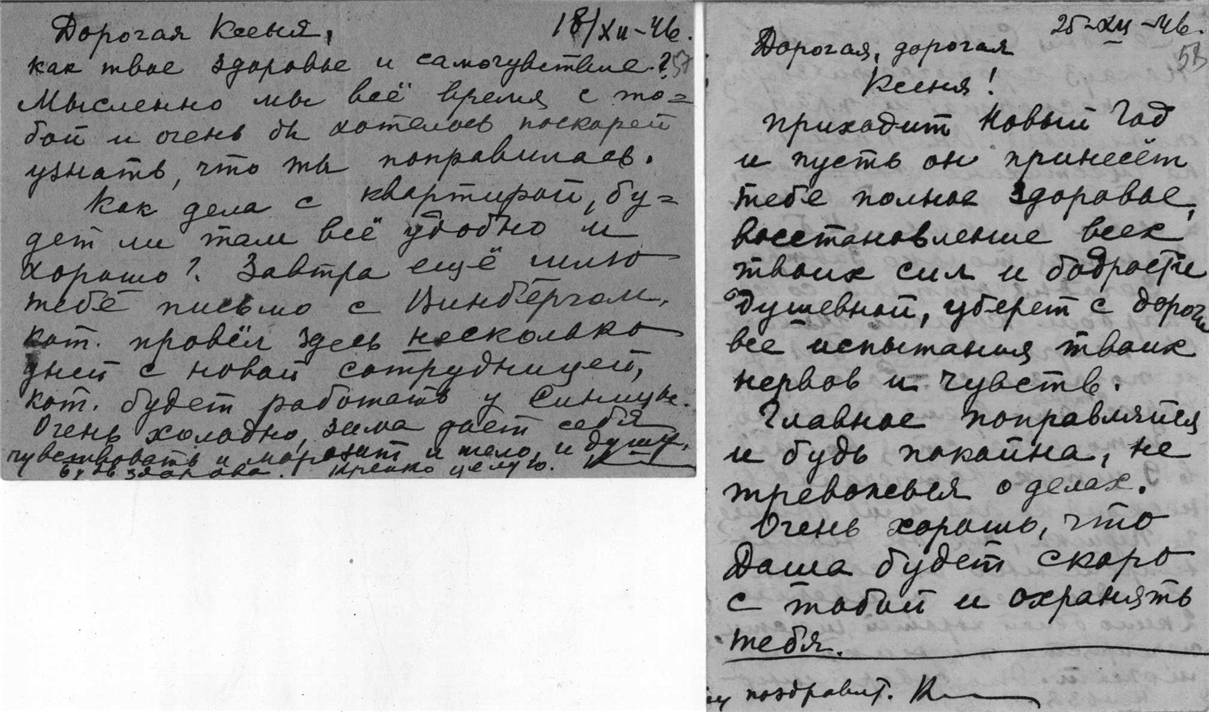 Дорогая Ксеня, 18/XII-46.
как твое здоровье и самочувствие? 57
Мысленно мы всё время с то=
бой и очень бы хотелось поскорей
узнать, что ты поправилась.
Как дела с квартирой, бу=
дет ли там всё удобно и
хорошо? Завтра ещё шлю
тебе письмо с Винбергом,
кот. провёл здесь несколько
дней с новой сотрудницей,
кот. будет работать у Синицы.
Очень холодно, зима дает себя
чувствовать и морозит и тело, и душу.
Будь здорова. Крепко целую.
25-XII-46.
58
Дорогая, дорогая
Ксеня!
Приходит Новый Год
и пусть он принесёт
тебе полное здоровье,
восстановление всех
твоих сил и бодрости
душевной, уберет с дороги
все испытания твоих
нервов и чувств.
Главное поправляйся
и будь покойна, не
тревожься о делах.
Очень хорошо, что
Даша будет скоро
с тобой и охранять
тебя.
поздравит.